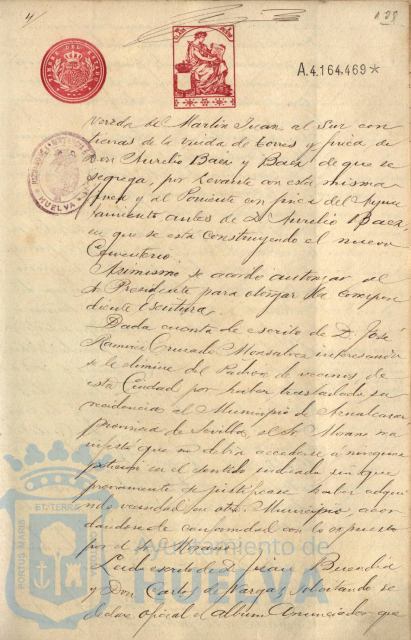 A.4.164.469*
HUELVA
vereda de Martin Juan, al Sur con
tierras de la viuda de Torres y finca de
Don Aurelio Baez y Baez de que se
segrega, por Levante con esta misma
finca y al Poniente con finca del Ayun
tamiento antes de D. Aurelio Baez,
en que se esta construyendo el nuevo
Cementerio.
Asimismo se acordo autorizar al
Sr Presidente para otorgar la correspon
diente escritura.
Dada cuenta de escrito de D. José
Ramirez Cruzado Monsalvez interesando
se le elimine del Padron de vecinos de
esta Ciudad por haber trasladado su
residencia al Municipio de Benalcazar
provincia de Sevilla, el Sr Moreno ma
nifestó que no debia accederse a ninguna
peticion en el sentido indicado sin que
previamente se justificase haber adqui
rido vecindad en otro Municipio, acor
dandose de conformidad con lo expuesto
por el Sr Moreno.
Leido escrito de D. Juan
y Don Carlos de Vargas solicitando se
declare oficial el album Anunciador que
PORTUS MARIS ET TERRÆ
Ayuntamiento de
HUELVA